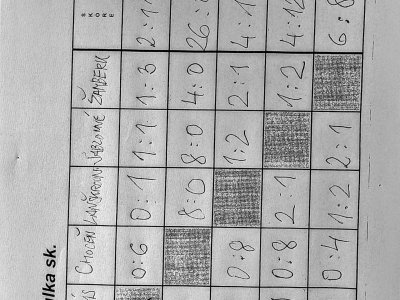 ulka sk.
CHOCEŇ LANŠKROUN JABLONNÉ ŽAMBERK SKÓRE
0:6 0:1 1:1 1:3 2:11
8:0 8:0 4:0 26:
0:8 1:2 2:1 4:1
0:8 2:1 1:2 4:12
0:4 1:2 2:1 6:8